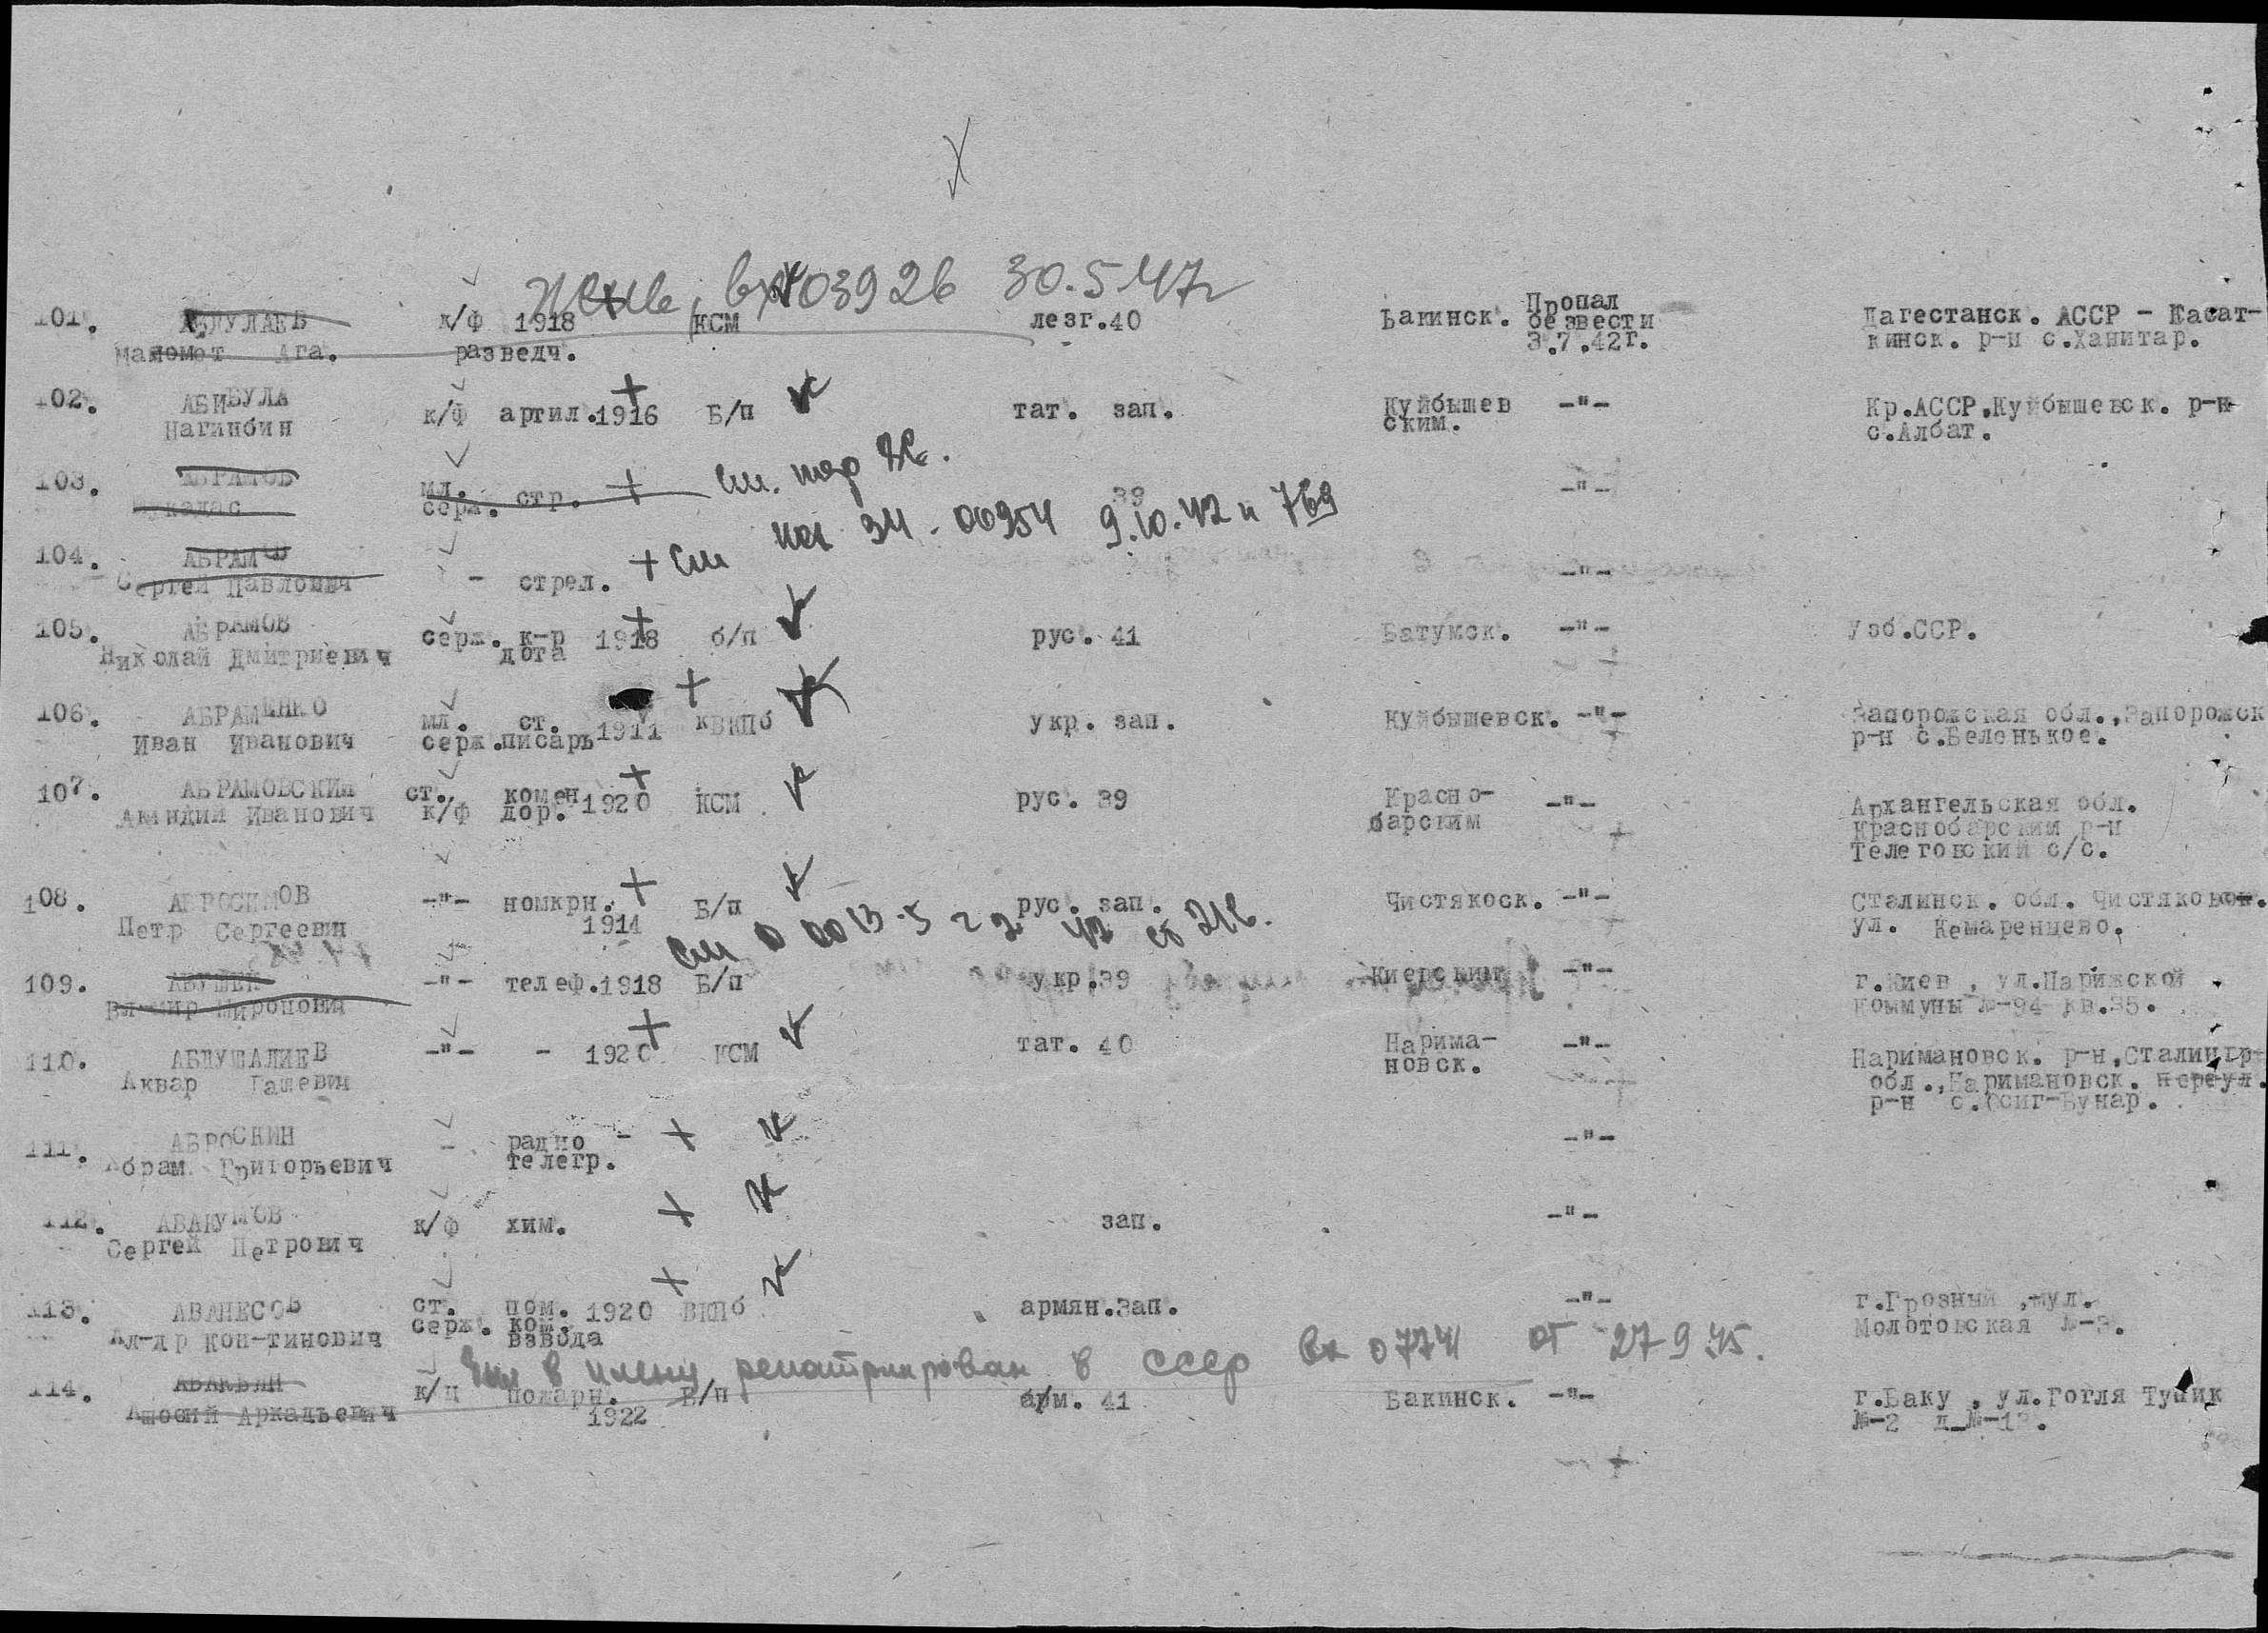 вх 03926 30.5.47г
101. АБДУЛАЕВ к/ф 1918 КСМ лезг.40 Бакинск. Пропал без вести 3.7.42г. Дагестанск. АССР - Касат-
Магомот Ага. разведч. кинск. р-н с.Ханитар.
102. АБИБУЛА к/ф артил.1916 Б/п тат. зап. Куйбышев -"- Кр.АССР,Куйбышевск. р-н
Нагинбин ским. с.Албат.
103. АБРАМОВ мл. стр. См. 39 -"-
серж.
на 9.10.42 и 769
104. АБРАМОВ - стрел. См -"-
Сергей Павлович
105. АБРАМОВ серж. к-р 1918 б/п рус. 41 Батумск. -"- Узб.ССР.
Николай Дмитриевич дота
106. АБРАМЕНКО мл. ст. 1911 кВКПб укр. зап. Куйбышевск. -"- Запорожская обл.,Запорожск
Иван Иванович серж.писарь р-н с.Беленькое.
107. АБРАМОВСКИЙ ст. комен 1920 КСМ рус. 39 Красно- -"- Архангельская обл.
Иванович к/ф дор. барским Краснобарским р-н
Телеговский с/с.
108. АБРОСИМОВ -"- номкрн. Б/п рус. зап. Чистякоск. -"- Сталинск. обл. Чистяковск.
Петр Сергеевич 1914 ул. Кемаренцево.
См
109. АБУШЕК -"- телеф.1918 Б/п укр.39 Киевским -"- г.Киев , ул.Парижской
Миронович Коммуны №-94 кв.35.
110. АБДУШАЛИЕВ -"- - 1920 КСМ тат. 40 Нарима- -"- Наримановск. р-н,Сталингр-
Аквар Гашевич новск. обл.,Наримановск. переул.
р-н с.Осиг-Бунар.
111. АБРОСКИН - радио - -"-
Абрам Григорьевич телегр.
112. АВАКУМОВ к/ф хим. зап. -"-
Сергей Петрович
113. АВАНЕСОВ ст. пом. 1920 ВКПб армян.зап. -"- г.Грозный ,ул.
Ал-др Кон-тинович серж. ком. Молотовская №-3.
взвода
Был в плену репатриирован в СССР Вх 07741 от 27 9.45.
114. АВАКЬЯН к/ц пожарн. Б/п арм. 41 Бакинск. -"- г.Баку , ул.Гогля Тупик
Аркадьевич 1922 №-2